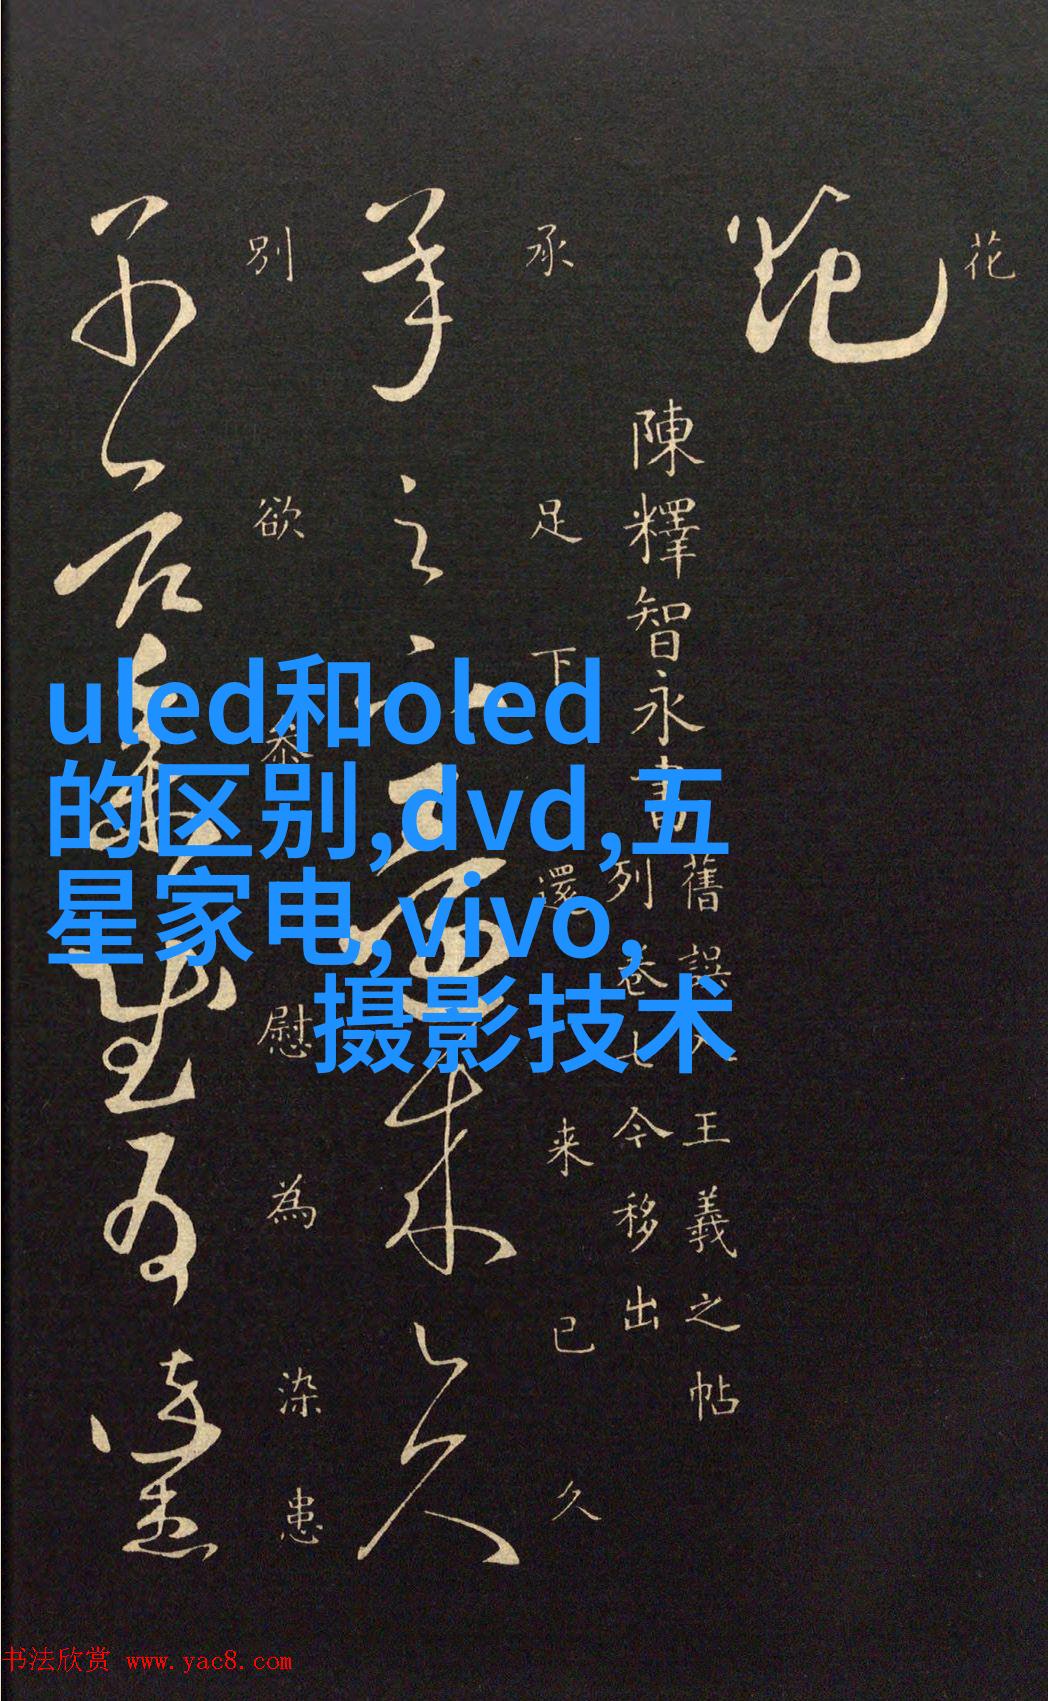 花
陳釋智永書
舊誤入王羲之帖
列卷七今移出
承足下還来已久
別欲恭慰為染患
uled和oled
的区别,dvd,五
星家电,vivo,
摄影技术
书法欣赏 www.yac8.com